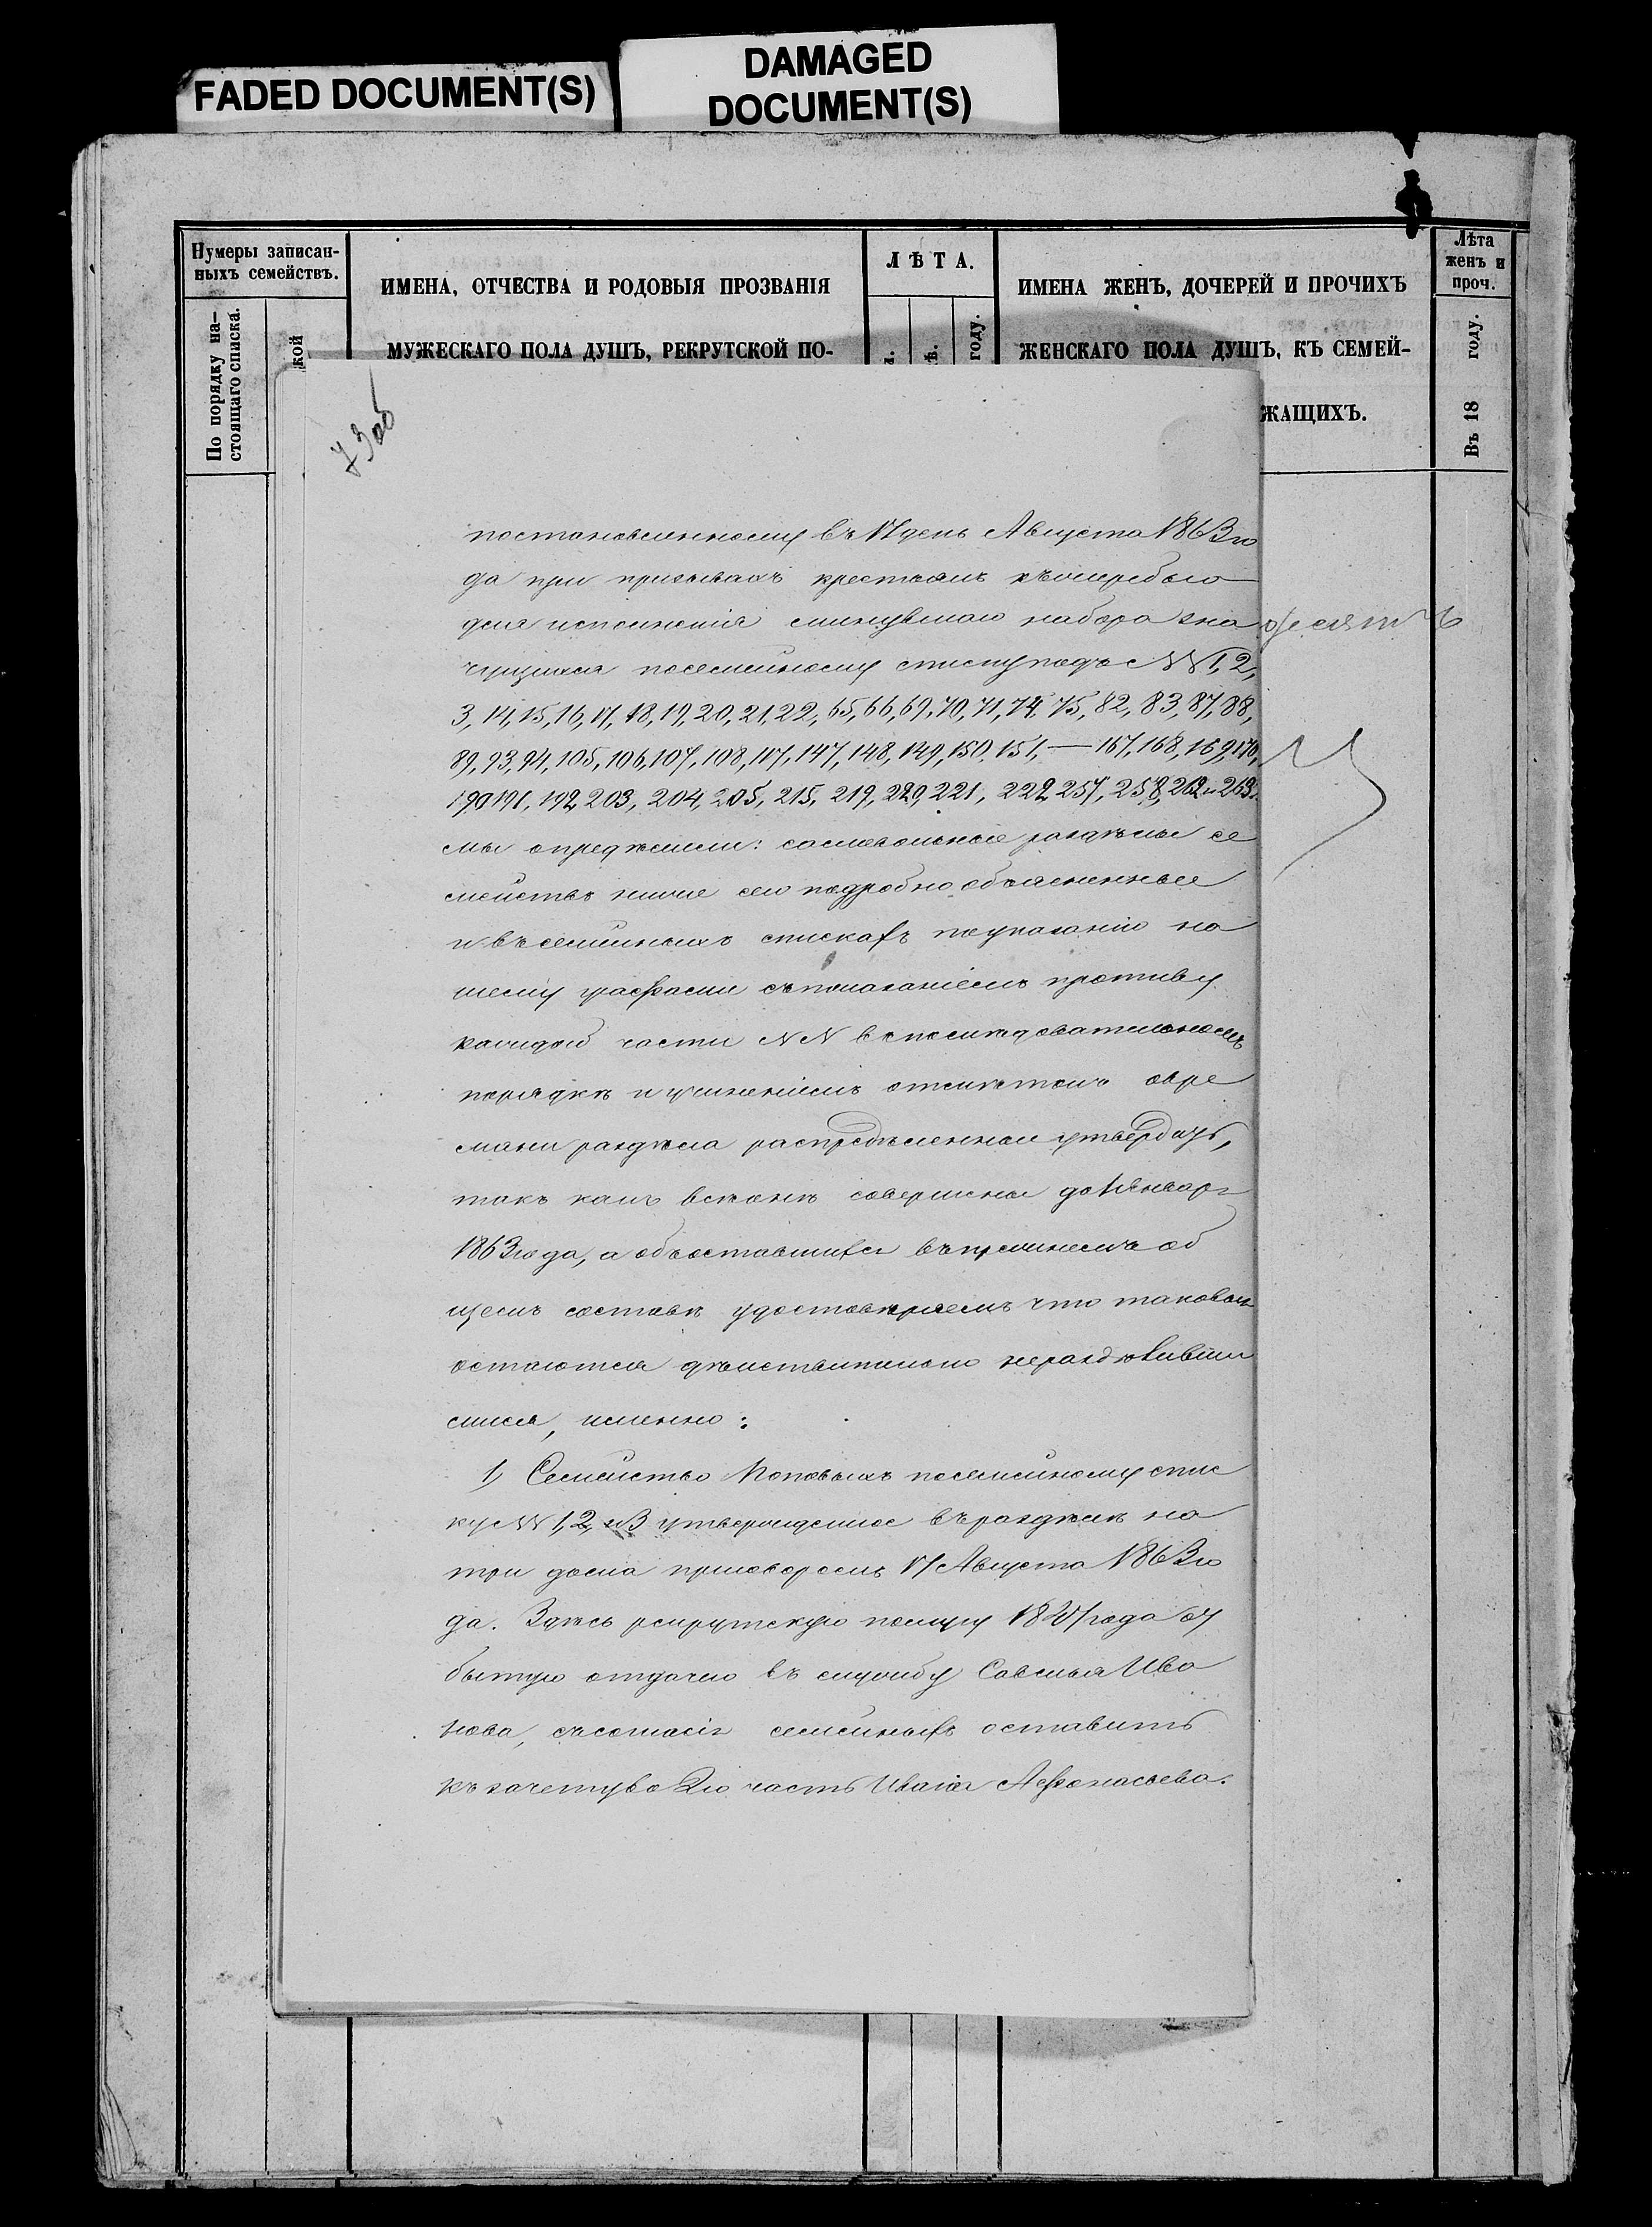 FADED DOCUMENT(S)
DAMAGED
DOCUMENT(S)
Нумеры записан-
ныхъ семействъ.
По порядку на-
стоящаго списка.
кой
ИМЕНА, ОТЧЕСТВА И РОДОВЫЯ ПРОЗВАНІЯ
МУЖЕСКАГО ПОЛА ДУШЪ, РЕКРУТСКОЙ ПО-
ЛѢТА.
году.
ИМЕНА ЖЕНЪ, ДОЧЕРЕЙ И ПРОЧИХЪ
ЖЕНСКАГО ПОЛА ДУШЪ, КЪ СЕМЕЙ-
ЖАЩИХЪ.
Лѣта
женъ и
проч.
Въ 18 году.
73об
постановленному въ 17 день Августа 1863 го
да при призывахъ крестьянъ къ жеребью
для исполненія минувшаго набора зна
чущихся посемейному списку подъ NN 1, 2,
3, 14, 15, 16, 17, 18, 19, 20, 21, 22, 65, 66, 69, 70, 71, 74, 75, 82, 83, 87, 88,
89, 93, 94, 105, 106, 107, 108, 117, 147, 148, 149, 150, 151, — 167, 168, 169, 170,
190, 191, 192, 203, 204, 205, 215, 219, 220, 221, 222, 257, 258, 262 и 263.
мы опредѣлили: самовольные раздѣлы се
мействъ ниже сего подробно объясненные
и въ семейныхъ спискахъ по указанію на
шему съ показаніемъ противу
каждой части NN въ послѣдовательномъ
порядкѣ и учиненіемъ отмѣтокъ о вре
мени раздѣла утвердить,
такъ какъ всѣ онѣ совершены до 1 Января
1863 года, а объ оставшихся въ прежнемъ об
щемъ составѣ удостовѣряемъ что таковыя
остаются дѣйствительно нераздѣливши
мися, именно:
1, Семейство Поповыхъ посемейному спис
ку NN 1, 2, и 3 утвержденное въ раздѣлѣ на
три дома приговоромъ 17 Августа 1863 го
да. Здѣсь рекрутскую помету года
бытую отдачею въ службу Савелья Ива
нова, съ согласія семейныхъ оставить
къ зачету во 2ю часть Ивана Афонасьева.